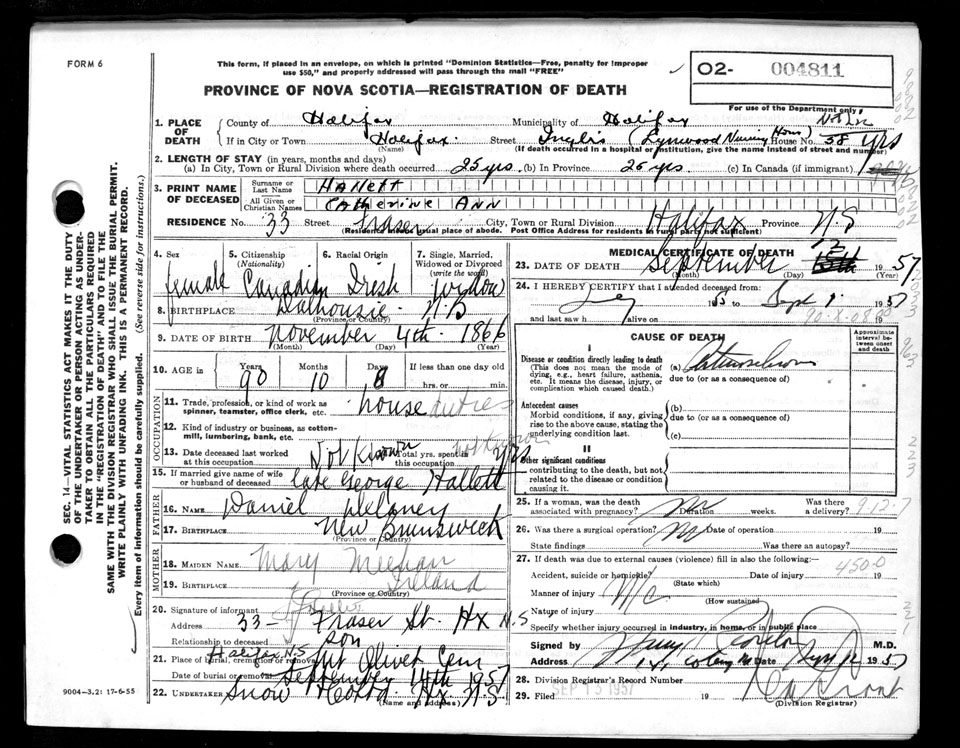 FORM 6
This form, if placed in an envelope, on which is printed "Dominion Statistics—Free, penalty for improper
use $50," and properly addressed will pass through the mail "FREE"
O2- 004811
PROVINCE OF NOVA SCOTIA—REGISTRATION OF DEATH
For use of the Department only
1. PLACE OF DEATH
County of Halifax Municipality of Halifax
If in City or Town Halifax. Street Inglis (Lynwood Nursing Home) House No. 55
(Name) (If death occurred in a hospital or institution, give the name instead of street and number)
2. LENGTH OF STAY (in years, months and days)
(a) In City, Town or Rural Division where death occurred 25 yrs. (b) In Province 25 yrs. (c) In Canada (if immigrant)
3. PRINT NAME OF DECEASED
Surname or Last Name Hallett
All Given or Christian Names Catherine Ann
RESIDENCE No. 33 Street Fraser City, Town or Rural Division Halifax Province N.S
(Residence means usual place of abode. Post Office Address for residents in rural parts not sufficient)
4. Sex female
5. Citizenship (Nationality) Canadian
6. Racial Origin Irish
7. Single, Married, Widowed or Divorced (write the word) widow
8. BIRTHPLACE Dalhousie N.B
(Province or Country)
9. DATE OF BIRTH November 4th. 1866
(Month) (Day) (Year)
10. AGE in Years 90 Months 10 Days 8 If less than one day old
hrs. or min.
OCCUPATION
11. Trade, profession, or kind of work as spinner, teamster, office clerk, etc. house duties
12. Kind of industry or business, as cotton-mill, lumbering, bank, etc.
13. Date deceased last worked at this occupation Not Known Total yrs. spent in this occupation not known yrs
15. If married give name of wife or husband of deceased late George Hallett
FATHER
16. Name Daniel Delaney
17. Birthplace New Brunswick
(Province or Country)
MOTHER
18. Maiden Name Mary Meehan
19. Birthplace Ireland
(Province or Country)
20. Signature of informant
Address 33- Fraser St. Hx N.S
Relationship to deceased son
21. Place of burial, cremation or removal Halifax N.S Mt Olivet Cem
Date of burial or removal September 14th 1957
22. UNDERTAKER Snow & Co Ltd. Hx. N.S
(Name and Address)
9004-3.2: 17-6-55
MEDICAL CERTIFICATE OF DEATH
23. DATE OF DEATH September 12 1957
(Month) (Day) (Year)
24. I HEREBY CERTIFY that I attended deceased from
1955 to Sept 9. 1957
and last saw h alive on 19
CAUSE OF DEATH
Approximate interval between onset and death
I
Disease or condition directly leading to death
(This does not mean the mode of dying, e.g., heart failure, asthenia, etc. It means the disease, injury, or complication which caused death.)
(a)
due to (or as a consequence of)
Antecedent causes
Morbid conditions, if any, giving rise to the above cause, stating the underlying condition last.
(b)
due to (or as a consequence of)
(c)
II
Other significant conditions
contributing to the death, but not related to the disease or condition causing it.
25. If a woman, was the death associated with pregnancy? No Duration weeks. Was there a delivery?
26. Was there a surgical operation? No Date of operation 19
State findings Was there an autopsy?
27. If death was due to external causes (violence) fill in also the following: 450.0
Accident, suicide or homicide? Date of injury 19
(State which)
Manner of injury
(How sustained)
Nature of injury
Specify whether injury occurred in industry, in home, or in public place
Signed by M.D.
Address Date 1957
28. Division Registrar's Record Number
29. Filed SEP 13 1957 19
(Division Registrar)
SEC. 14—VITAL STATISTICS ACT MAKES IT THE DUTY
OF THE UNDERTAKER OR PERSON ACTING AS UNDER-
TAKER TO OBTAIN ALL THE PARTICULARS REQUIRED
IN THE "REGISTRATION OF DEATH" AND TO FILE THE
SAME WITH THE DIVISION REGISTRAR WHO SHALL ISSUE THE BURIAL PERMIT.
WRITE PLAINLY WITH UNFADING INK. THIS IS A PERMANENT RECORD.
Every item of information should be carefully supplied. (See reverse side for instructions.)